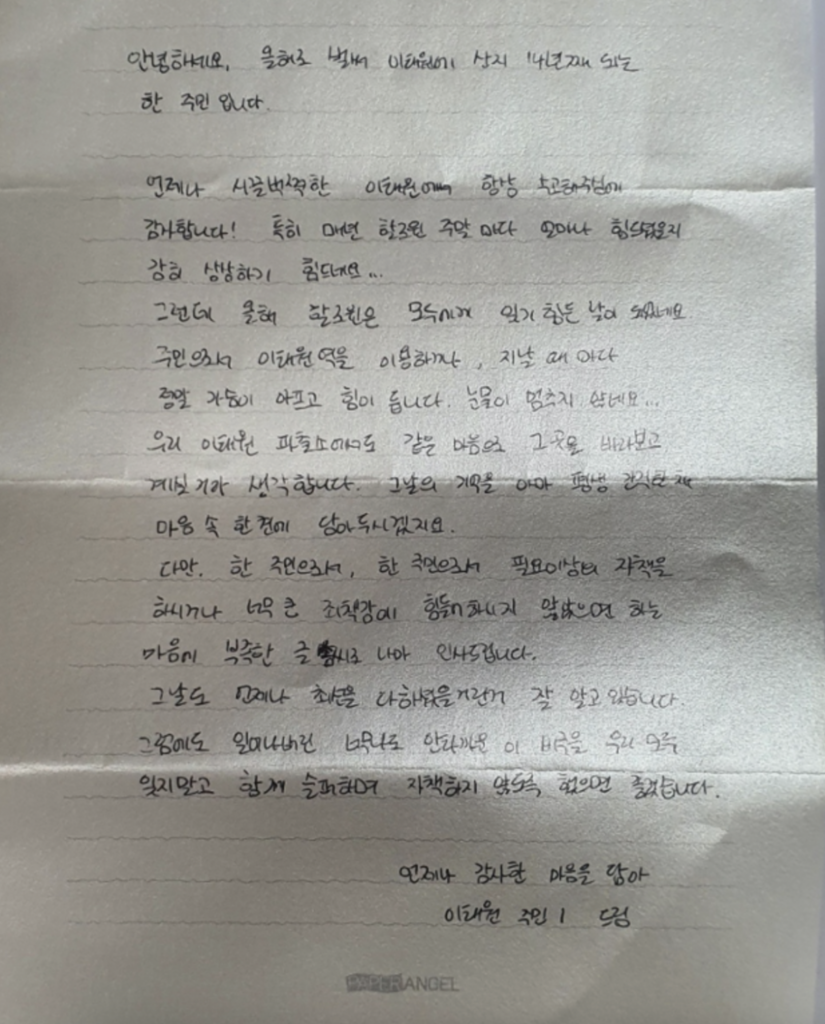 안녕하세요. 올해로 벌써 이태원에 산지 14년째 되는
한 주민 입니다.
언제나 시끌벅적한 이태원에서 항상 노고해주심에
감사합니다! 특히 매년 할로윈 주말 마다 얼마나 힘드셨을지
감히 상상하기 힘드네요...
그런데 올해 할로윈은 모두에게 잊기 힘든 날이 되었네요
주민으로서 이태원역을 이용하자, 지날 때 마다
정말 가슴이 아프고 힘이 듭니다. 눈물이 멈추지 않네요...
우리 이태원 파출소에서도 같은 마음으로 그곳을 바라보고
계실거라 생각합니다. 그날의 기억을 아마 평생 간직한 채
마음 속 한켠에 담아두시겠지요.
다만, 한 국민으로서, 한 주민으로서 필요이상의 자책을
하시거나 너무 큰 죄책감에 힘들어하시지 않았으면 하는
마음에 부족한 글 로 나마 인사드립니다.
그날도 언제나 최선을 다하셨을거란거 잘 알고 있습니다.
그럼에도 일어나버린 너무나도 안타까운 이 비극을 우리 모두
잊지말고 함께 슬퍼하며 자책하지 않도록 했으면 좋겠습니다.
언제나 감사한 마음을 담아
이태원 주민 1 드림
PAPERIANGEL